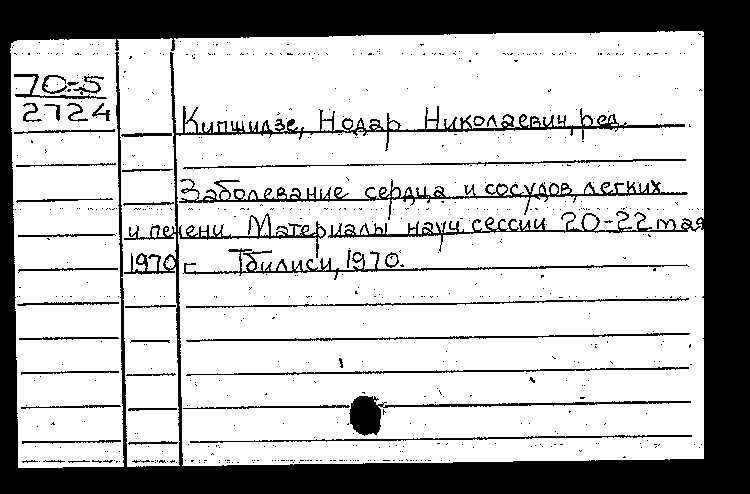 70-5
2724
Кипшидзе, Нодар Николаевич, ред.
Заболевание сердца и сосудов, легких
и печени. Материалы науч. сессии 20-22 мая
1970 г. Тбилиси, 1970.